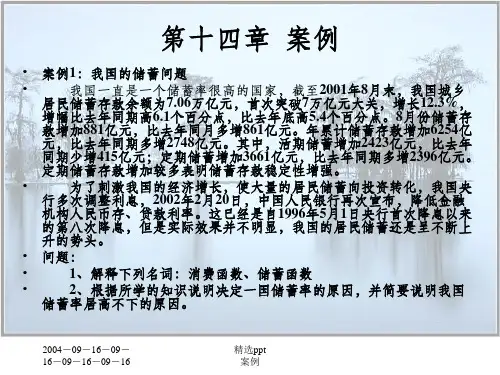 第十四章 案例
• 案例1：我国的储蓄问题
• 我国一直是一个储蓄率很高的国家，截至2001年8月末，我国城乡
居民储蓄存款余额为7.06万亿元，首次突破7万亿元大关，增长12.3%，
增幅比去年同期高6.1个百分点，比去年底高5.4个百分点。8月份储蓄存
款增加881亿元，比去年同月多增861亿元。年累计储蓄存款增加6254亿
元，比去年同期多增2748亿元。其中，活期储蓄增加2423亿元，比去年
同期少增415亿元；定期储蓄增加3661亿元，比去年同期多增2396亿元。
定期储蓄存款增加较多表明储蓄存款稳定性增强。
• 为了刺激我国的经济增长，使大量的居民储蓄向投资转化，我国央
行多次调整利息，2002年2月20日，中国人民银行再次宣布，降低金融
机构人民币存、贷款利率。这已经是自1996年5月1日央行首次降息以来
的第八次降息，但是实际效果并不明显，我国的居民储蓄还是呈不断上
升的势头。
• 问题：
• 1、解释下列名词：消费函数、储蓄函数
• 2、根据所学的知识说明决定一国储蓄率的原因，并简要说明我国
储蓄率居高不下的原因。
2004－09－16－09－
16－09－16－09－16
精选ppt
案例